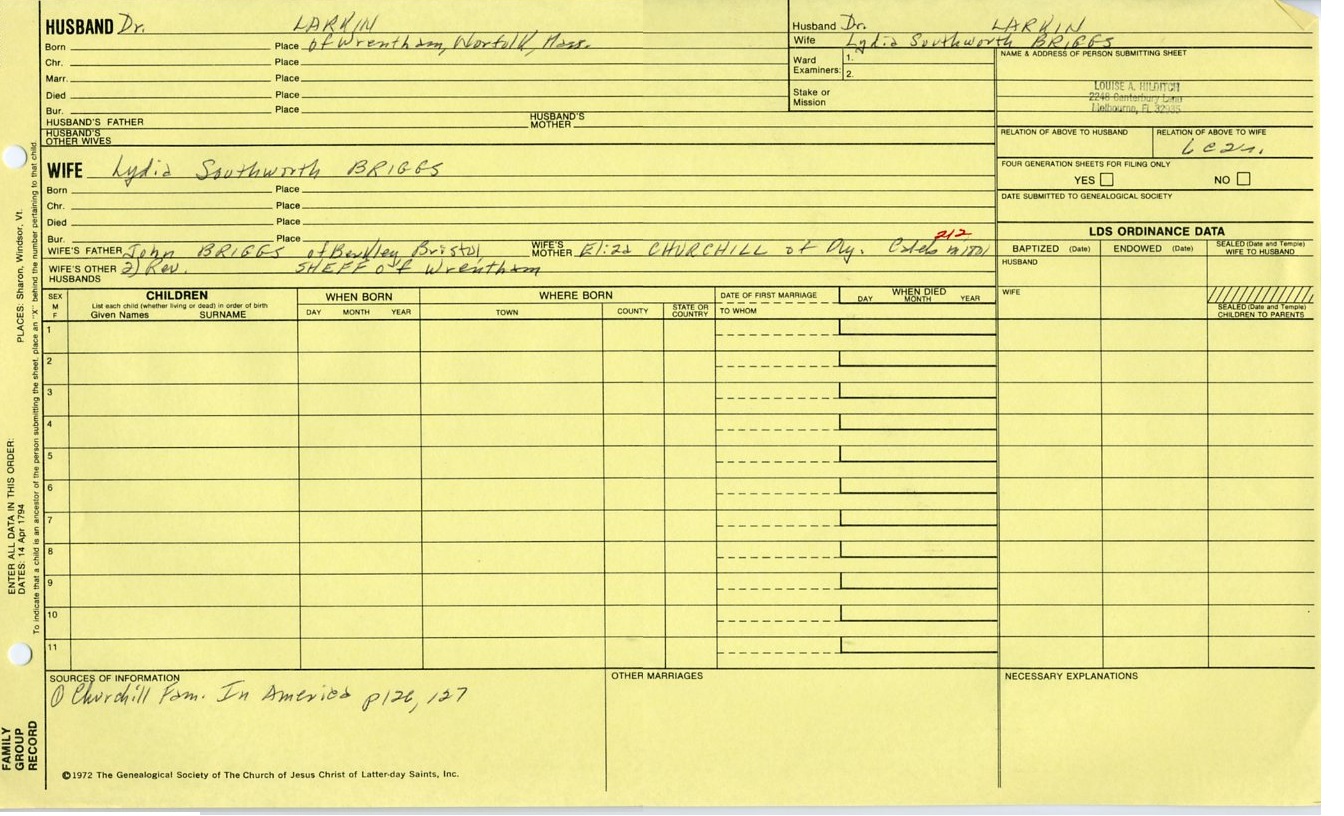 HUSBAND Dr. LARKIN
Born Place of Wrentham, Norfolk, Mass.
Chr. Place
Marr. Place
Died Place
Bur. Place
HUSBAND'S FATHER HUSBAND'S MOTHER
HUSBAND'S OTHER WIVES
Husband Dr. LARKIN
Wife Lydia Southworth BRIGGS
Ward Examiners: 1.
2.
Stake or Mission
NAME & ADDRESS OF PERSON SUBMITTING SHEET
LOUISE A. HILDITCH
2248 Canterbury Lane
Melbourne, FL 32935
RELATION OF ABOVE TO HUSBAND RELATION OF ABOVE TO WIFE
FOUR GENERATION SHEETS FOR FILING ONLY
YES NO
DATE SUBMITTED TO GENEALOGICAL SOCIETY
WIFE Lydia Southworth BRIGGS
Born Place
Chr. Place
Died Place
Bur. Place
212
WIFE'S FATHER John BRIGGS of Berkley, Bristol WIFE'S MOTHER Eliza CHURCHILL of Ply.
WIFE'S OTHER HUSBANDS 2) Rev. SHEFF of Wrentham
LDS ORDINANCE DATA
BAPTIZED (Date) ENDOWED (Date) SEALED (Date and Temple) WIFE TO HUSBAND
HUSBAND
WIFE
SEALED (Date and Temple) CHILDREN TO PARENTS
SEX M F
CHILDREN
List each child (whether living or dead) in order of birth
Given Names SURNAME
WHEN BORN
DAY MONTH YEAR
WHERE BORN
TOWN COUNTY STATE OR COUNTRY
DATE OF FIRST MARRIAGE
TO WHOM
WHEN DIED
DAY MONTH YEAR
1
2
3
4
5
6
7
8
9
10
11
SOURCES OF INFORMATION
① Churchill Fam. In America p126, 127
OTHER MARRIAGES
NECESSARY EXPLANATIONS
©1972 The Genealogical Society of The Church of Jesus Christ of Latter-day Saints, Inc.
FAMILY GROUP RECORD
ENTER ALL DATA IN THIS ORDER:
DATES: 14 Apr 1794
PLACES: Sharon, Windsor, Vt.
To indicate that a child is an ancestor of the person submitting the sheet, place an "X" behind the number pertaining to that child.